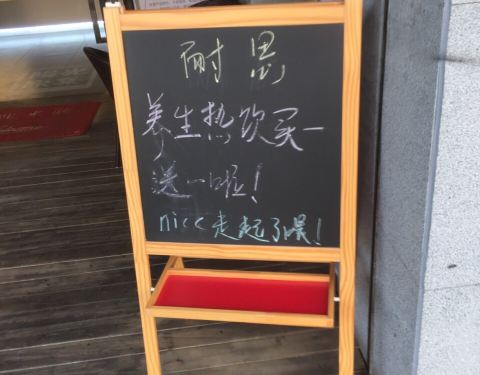 耐思
养生热饮买一
送一啦！
nice走起了嘿！